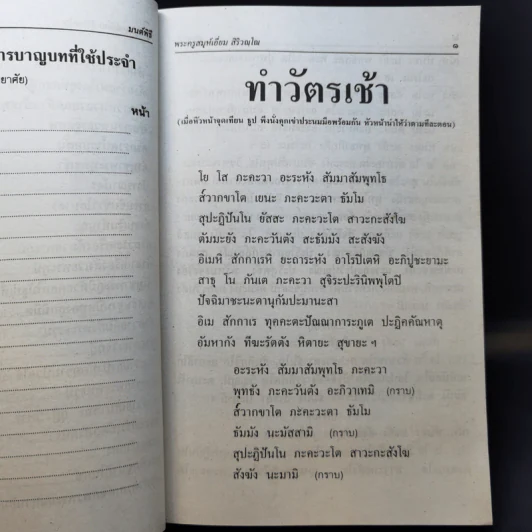 มนต์พิธี
ารบาญบทที่ใช้ประจำ
ยาศัย)
หน้า
พระครูสมุห์เอี่ยม สิริวณฺโณ
๑
ทำวัตรเช้า
(เมื่อหัวหน้าจุดเทียน ธูป พึงนั่งคุกเข่าประนมมือพร้อมกัน หัวหน้านำให้ว่าตามทีละตอน)
โย โส ภะคะวา อะระหัง สัมมาสัมพุทโธ
ส๎วากขาโต เยนะ ภะคะวะตา ธัมโม
สุปะฏิปันโน ยัสสะ ภะคะวะโต สาวะกะสังโฆ
ตัมมะยัง ภะคะวันตัง สะธัมมัง สะสังฆัง
อิเมหิ สักกาเรหิ ยะถาระหัง อาโรปิเตหิ อะภิปูชะยามะ
สาธุ โน ภันเต ภะคะวา สุจิระปะรินิพพุโตปิ
ปัจฉิมาชะนะตานุกัมปะมานะสา
อิเม สักกาเร ทุคคะตะปัณณาการะภูเต ปะฏิคคัณหาตุ
อัมหากัง ทีฆะรัตตัง หิตายะ สุขายะ ฯ
อะระหัง สัมมาสัมพุทโธ ภะคะวา
พุทธัง ภะคะวันตัง อะภิวาเทมิ (กราบ)
ส๎วากขาโต ภะคะวะตา ธัมโม
ธัมมัง นะมัสสามิ (กราบ)
สุปะฏิปันโน ภะคะวะโต สาวะกะสังโฆ
สังฆัง นะมามิ (กราบ)